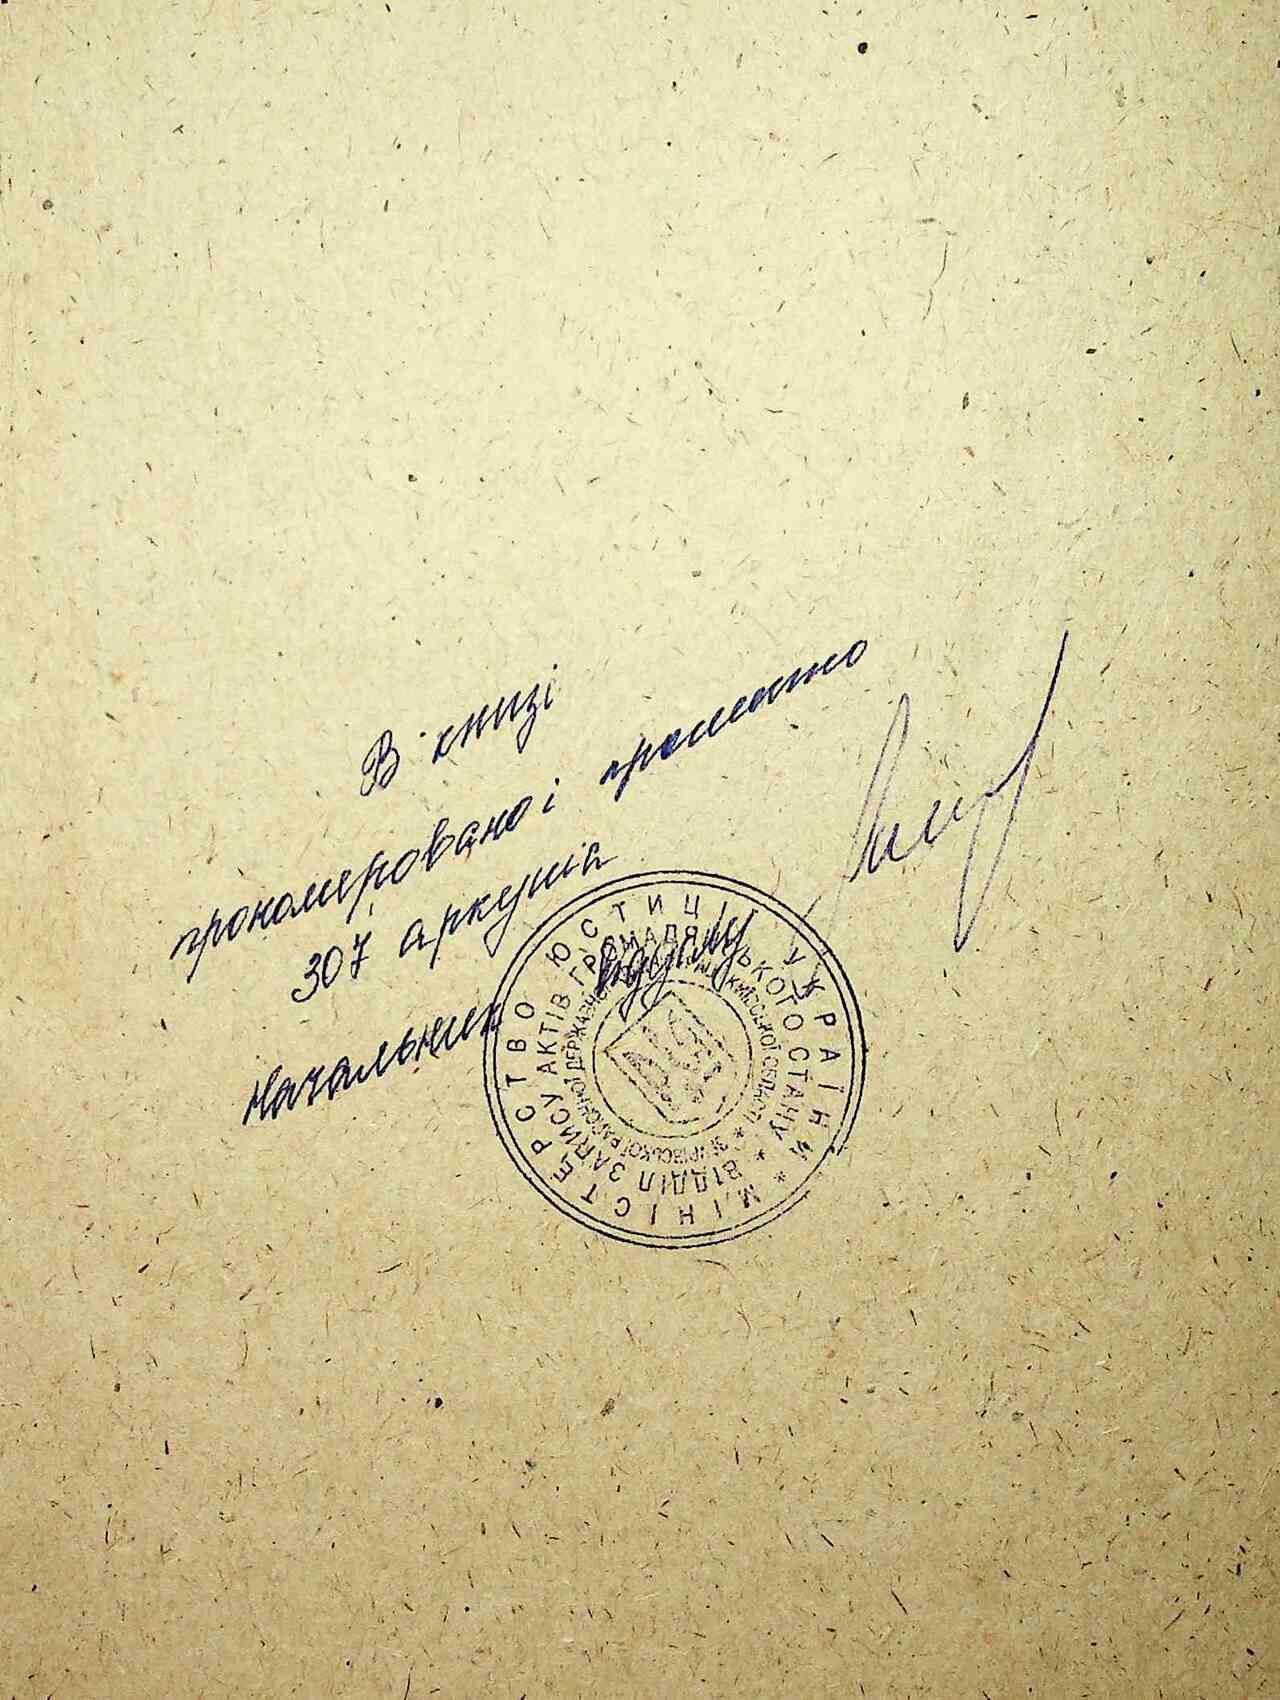 В книзі
прономеровано і прошито
307 аркушів
Начальник відділу
МІНІСТЕРСТВО ЮСТИЦІЇ УКРАЇНИ *
ВІДДІЛ ЗАПИСУ АКТІВ ГРОМАДЯНСЬКОГО СТАНУ *
РАЙОННОЇ ДЕРЖАВНОЇ КИЇВСЬКОЇ ОБЛАСТІ *